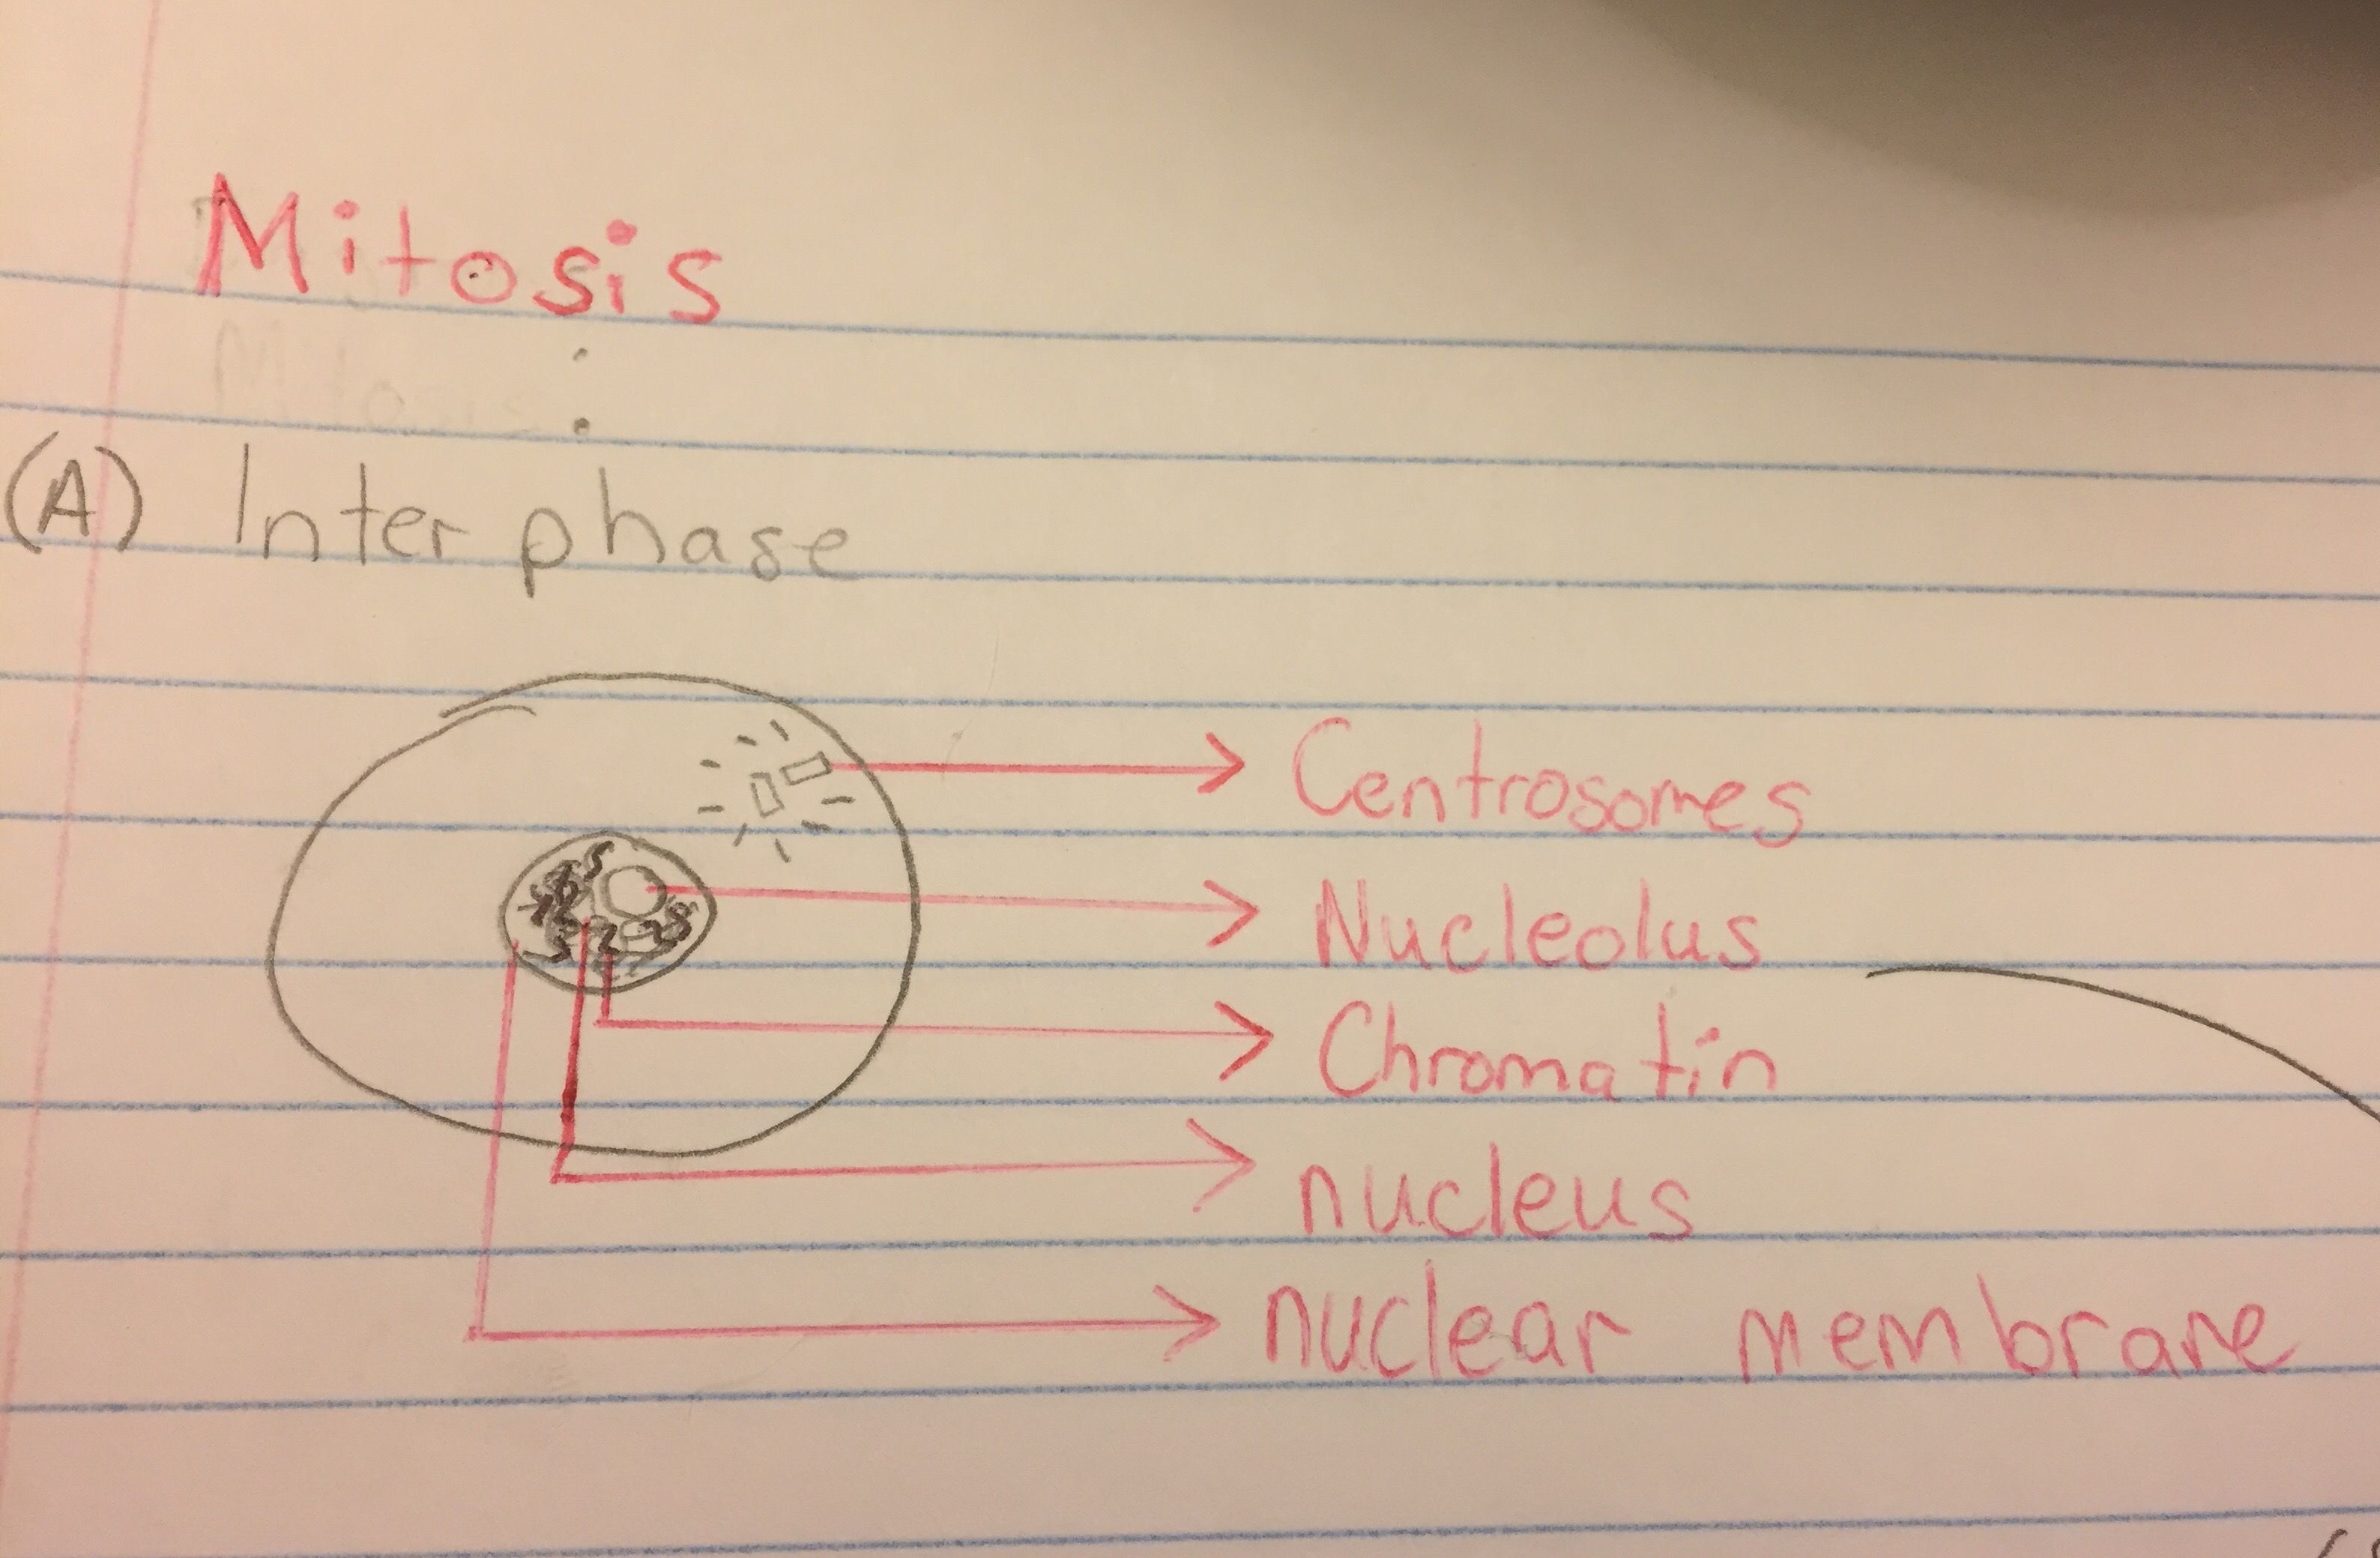 Mitosis
Mitosis :
(A) Interphase
Centrosomes
Nucleolus
Chromatin
nucleus
nuclear membrane